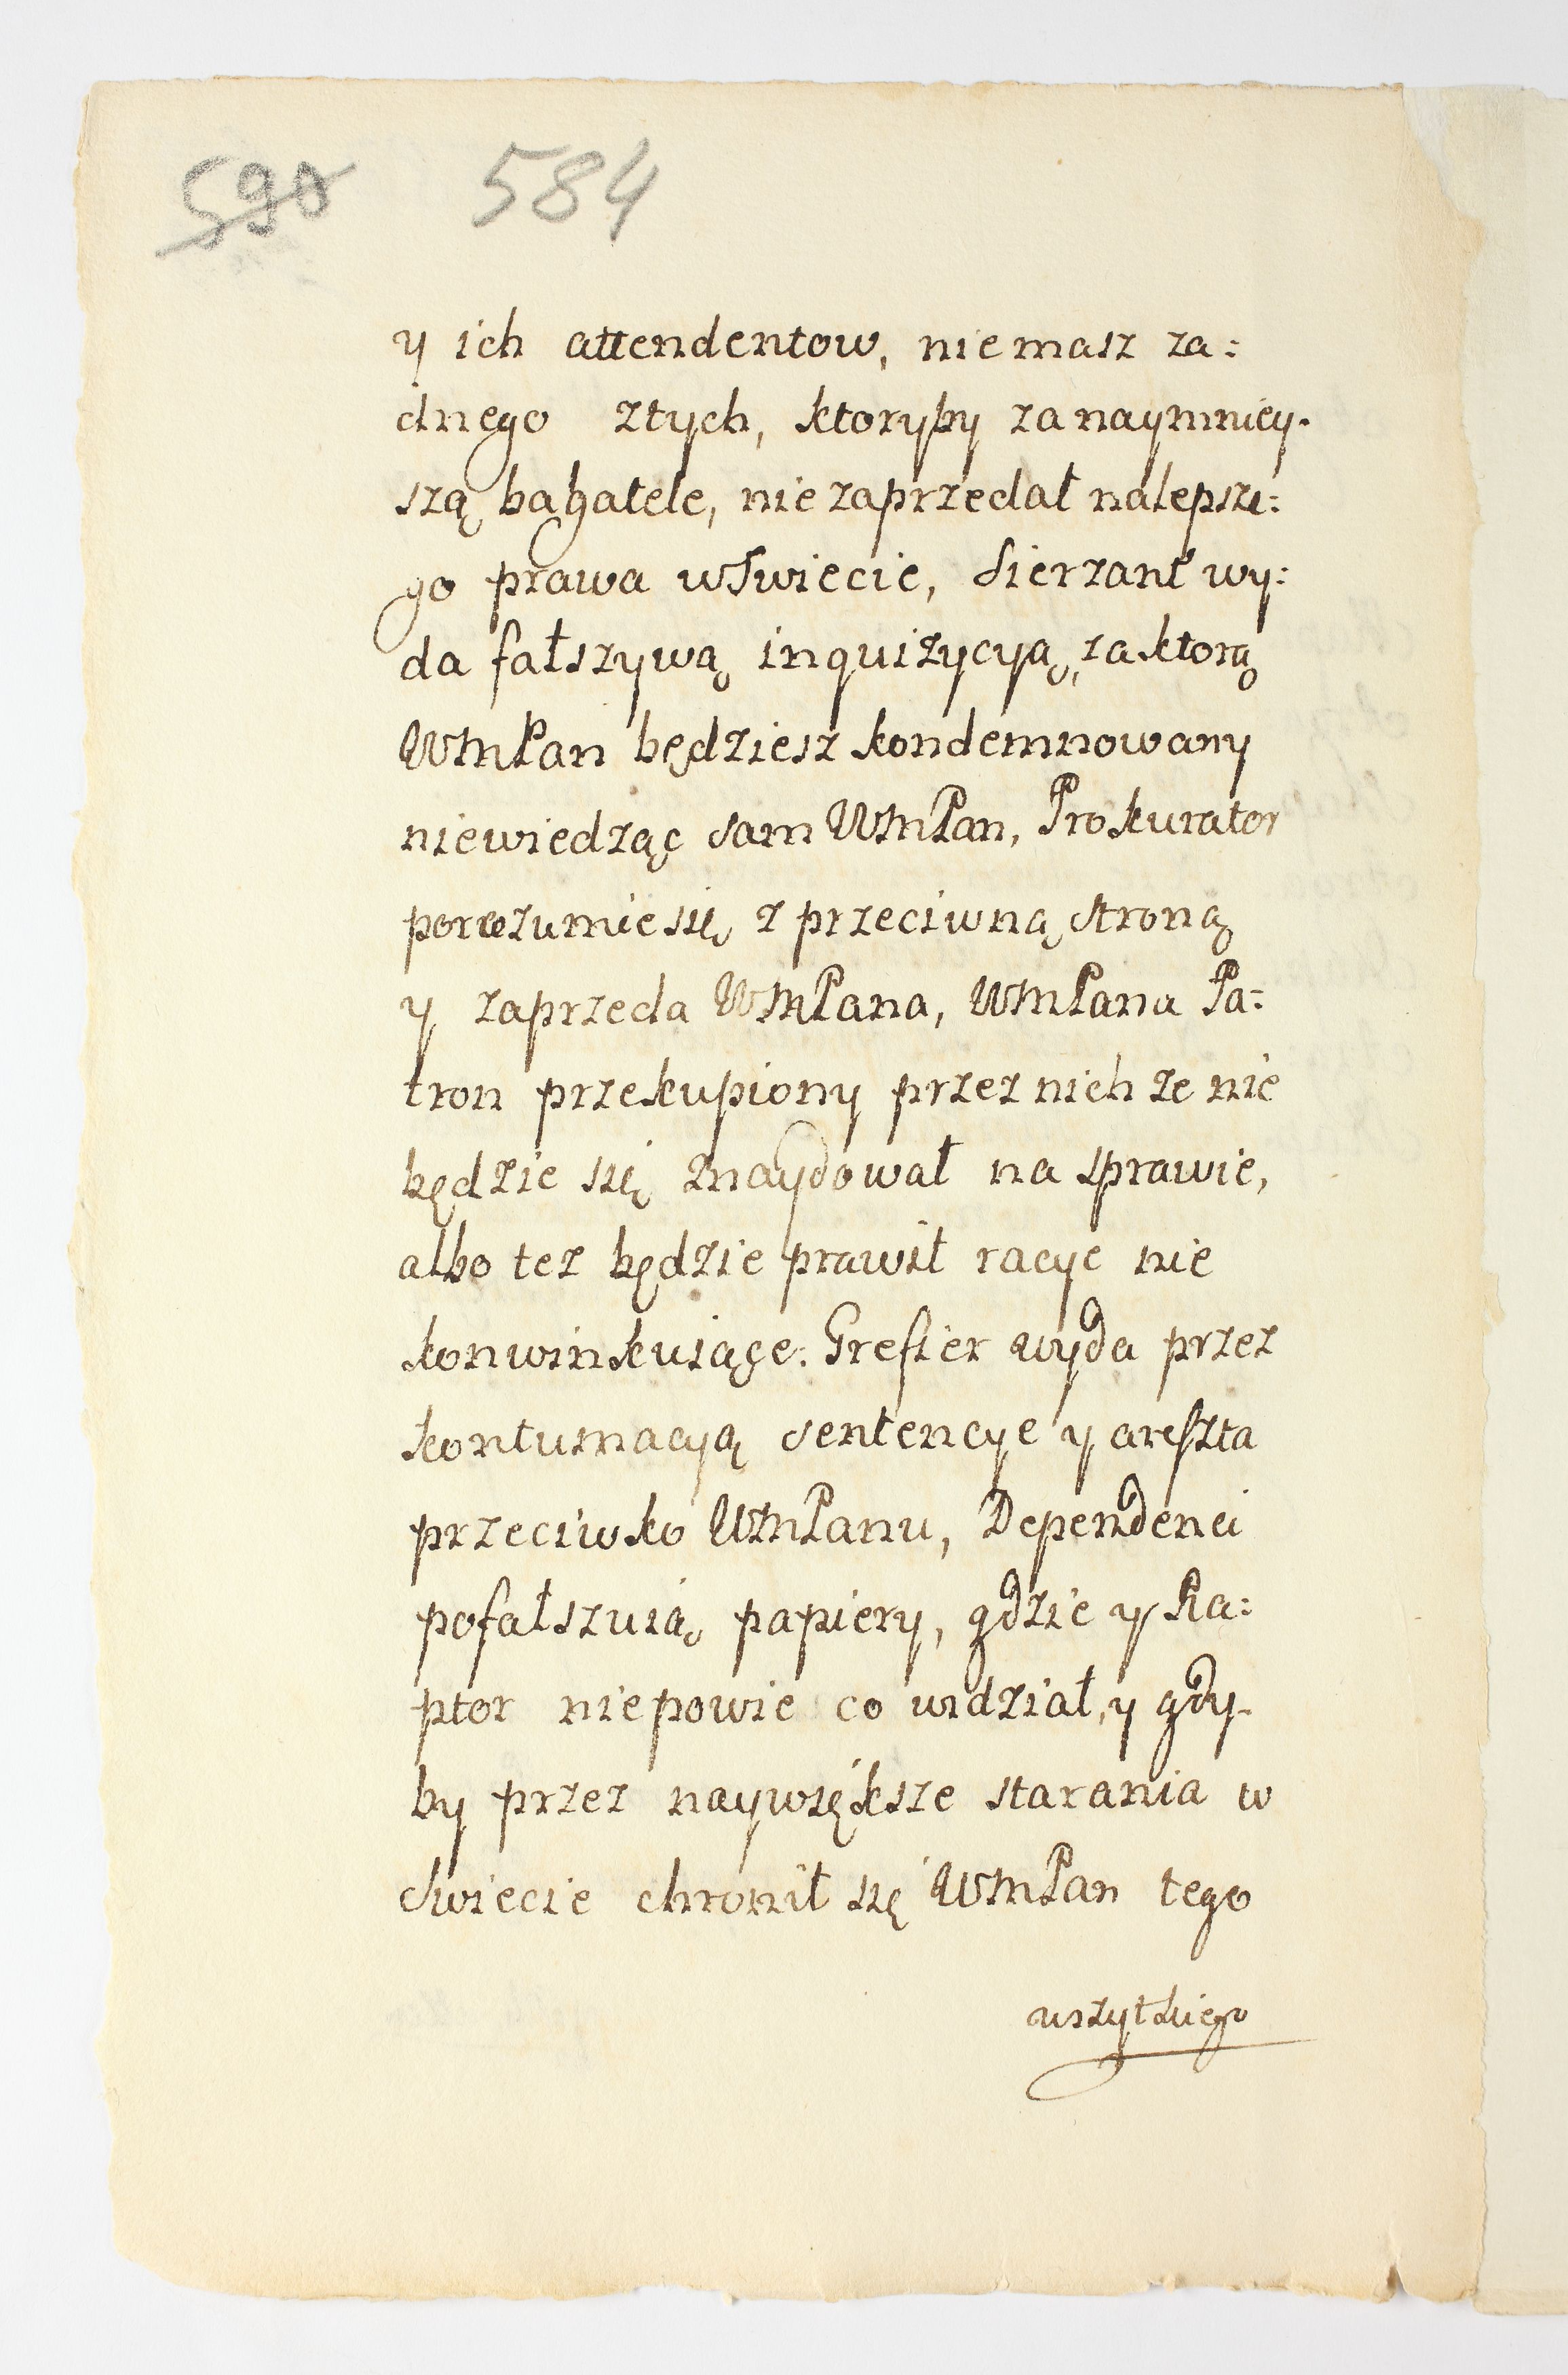 590 584
y ich attendentow, niemasz za:
dnego ztych, ktoryby zanaymniey.
szą bagatele, niezaprzedał nalepsze:
go prawa wswiecie, Sierzant wy:
da fałszywą inquizycyą, zaktorą
WMPan będziesz kondemnowany
niewiedząc sam WMPan, Prokurator
porozumie się z przeciwną stroną
y zaprzeda WMPana, WMPana Pa:
tron przekupiony przez nich ze nie
będzie się znaydował na sprawie,
albo tez będzie prawił racye nie
konwinkuiące. Grefier wyda przez
kontumacyą sentencye y areszta
przeciwko WMPanu, Dependenci
pofałszuią papiery, gdzie y Ra:
ptor niepowie co widział, y gdy-
by przez naywiększe starania w
swiecie chronił się WMPan tego
wszytkiego